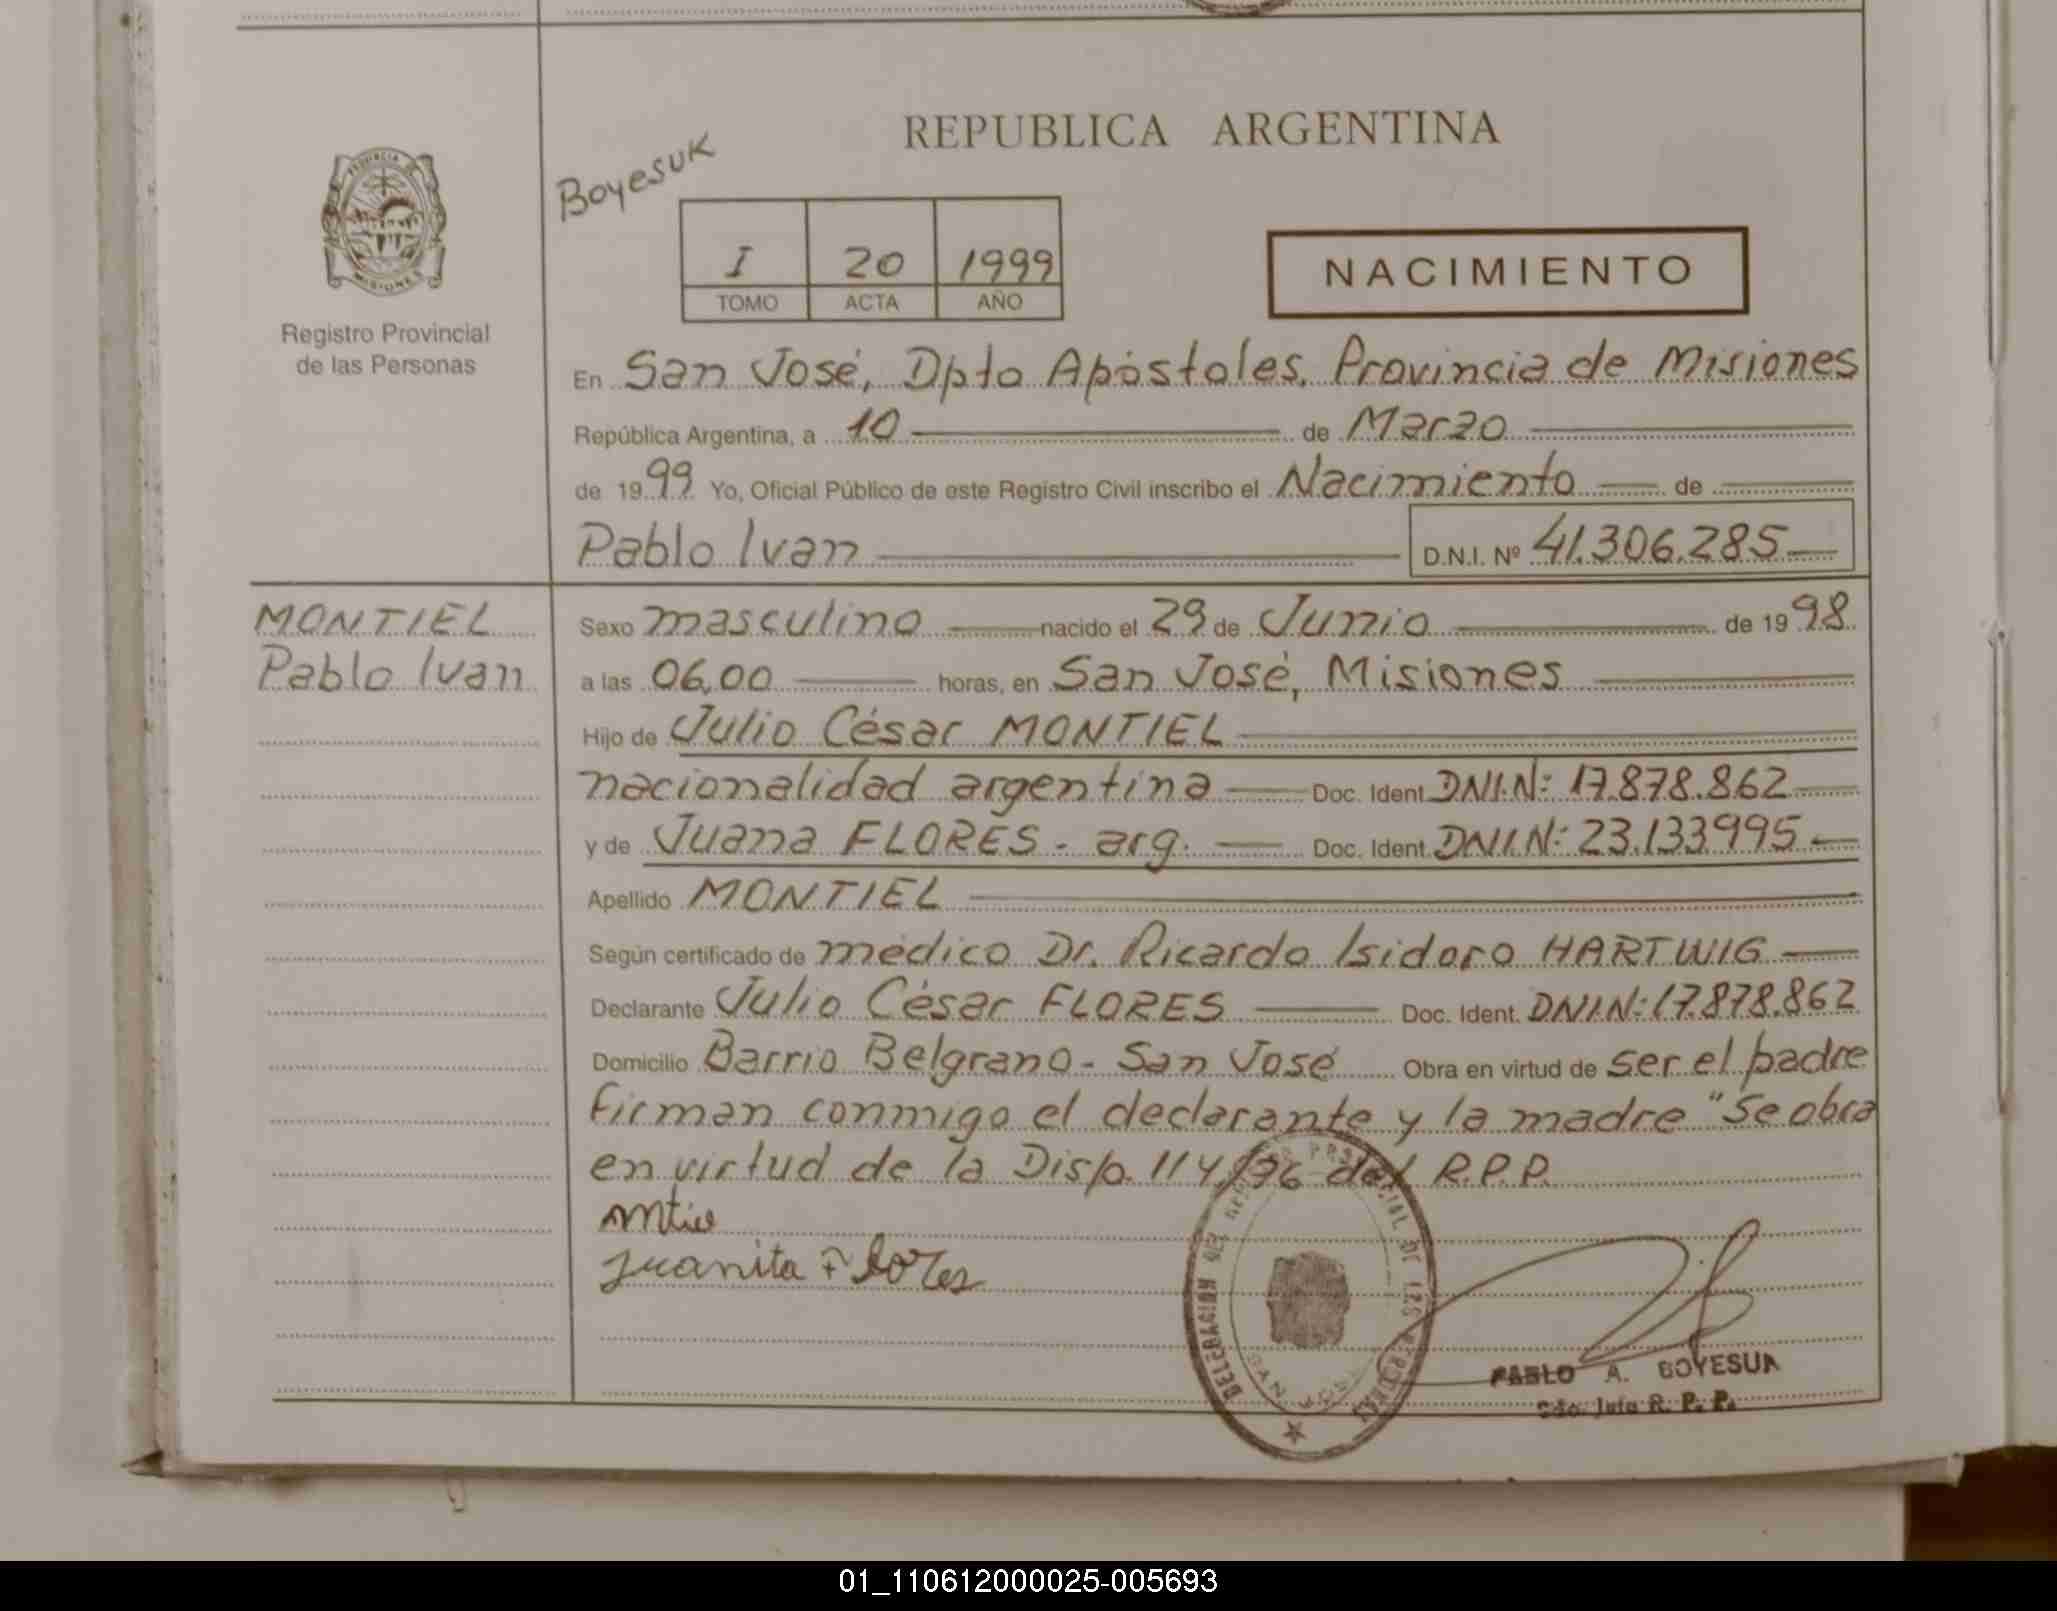 REPUBLICA ARGENTINA
Boyesuk
I 20 1999
TOMO ACTA AÑO
NACIMIENTO
PROVINCIA DE MISIONES
Registro Provincial
de las Personas
En San José, Dpto Apóstoles, Provincia de Misiones
República Argentina, a 10 de Marzo
de 1999 Yo, Oficial Público de este Registro Civil inscribo el Nacimiento de
Pablo Ivan D.N.I. Nº 41.306.285
MONTIEL
Pablo Ivan
Sexo masculino nacido el 29 de Junio de 1998
a las 06,00 horas, en San José, Misiones
Hijo de Julio César MONTIEL
nacionalidad argentina Doc. Ident. DNI.N: 17.878.862
y de Juana FLORES - arg. Doc. Ident. DNI.N: 23.133995
Apellido MONTIEL
Según certificado de médico Dr. Ricardo Isidoro HARTWIG
Declarante Julio César FLORES Doc. Ident. DNI.N: 17.878.862
Domicilio Barrio Belgrano - San José Obra en virtud de ser el padre
Firman conmigo el declarante y la madre "Se obra
en virtud de la Disp. 114/96 del R.P.P.
Juanita Flores
DELEGACION DEL REGISTRO PROVINCIAL DE LAS PERSONAS
SAN JOSE
PABLO A. BOYESUK
R. P. P.
01_110612000025-005693